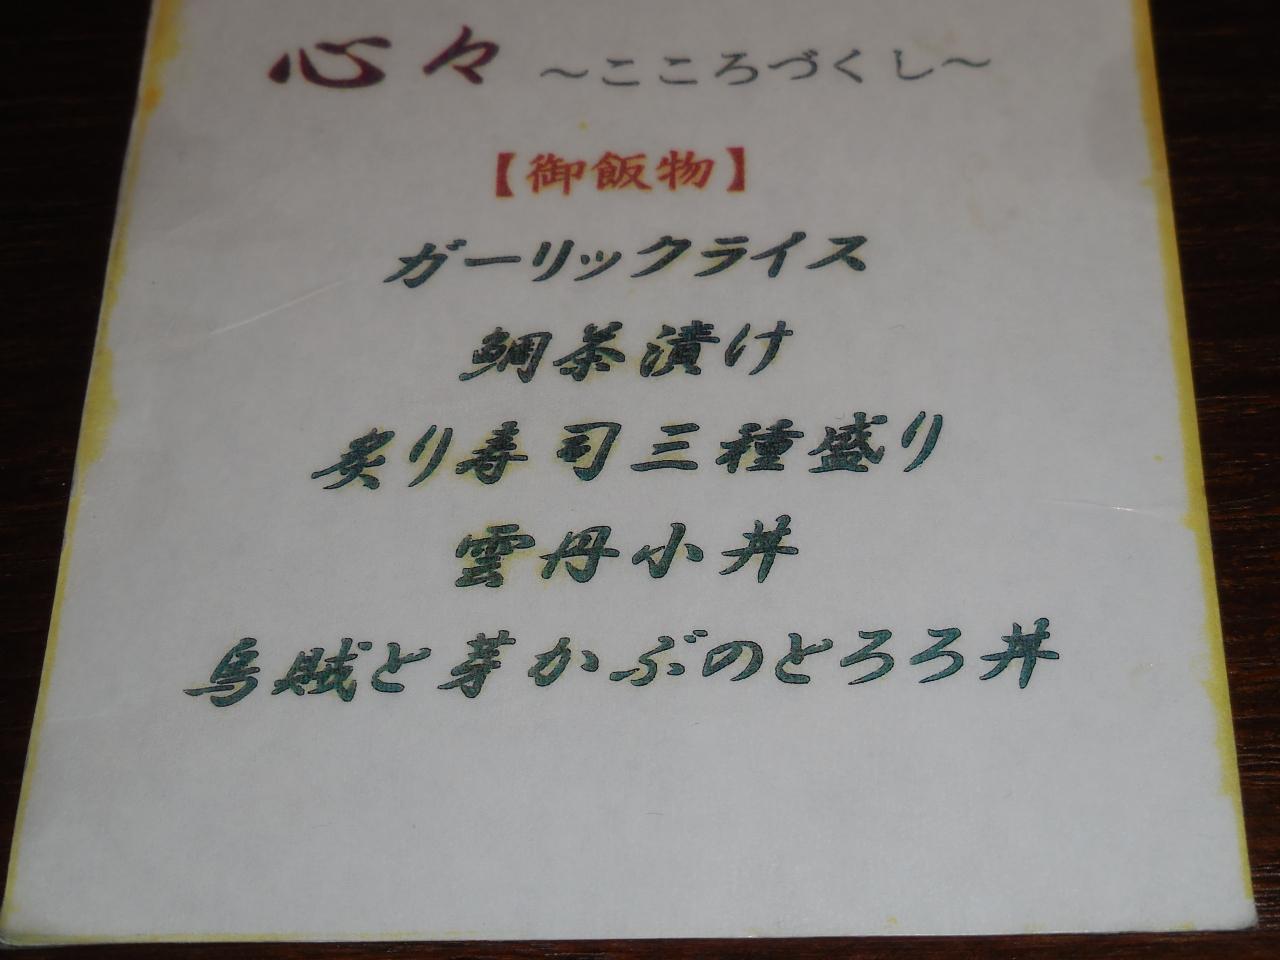 心々 ～こころづくし～
【御飯物】
ガーリックライス
鯛茶漬け
炙り寿司三種盛り
雲丹小丼
烏賊と芽かぶのとろろ丼